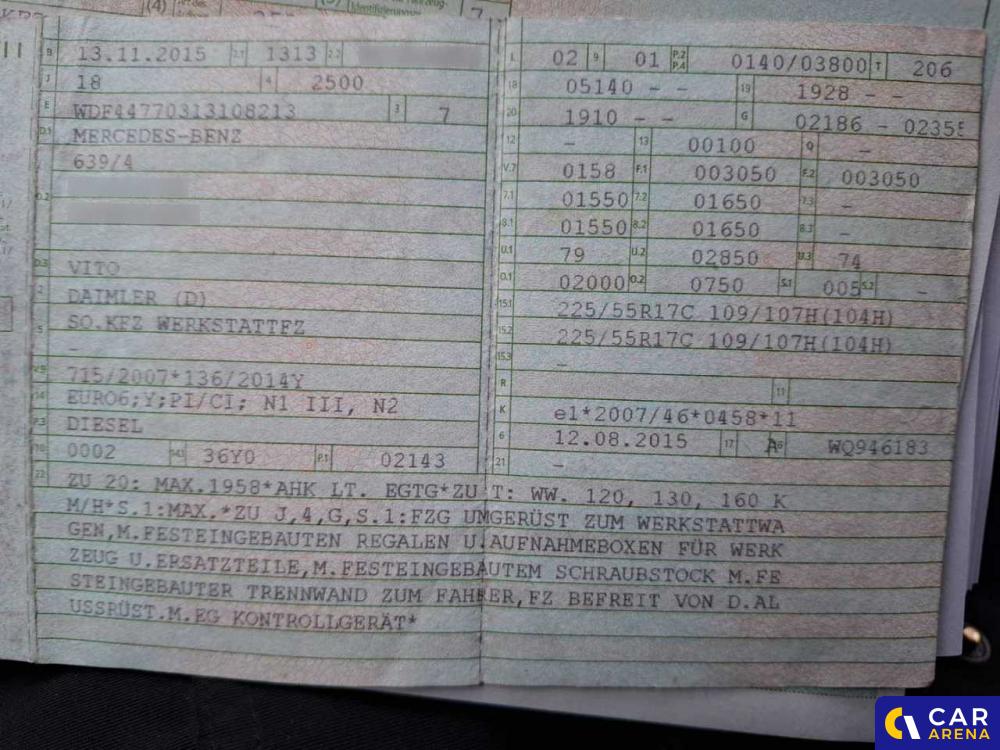 (4)
Identifizierungs
7
B 13.11.2015 2.1 1313 2.2
J 18 4 2500
E WDF44770313108213 3 7
D.1 MERCEDES-BENZ
639/4
D.2
D.3 VITO
2 DAIMLER (D)
5 SO.KFZ WERKSTATTFZ
–
V.9 715/2007*136/2014Y
14 EURO6;Y;PI/CI; N1 III, N2
P.3 DIESEL
10 0002 14.1 36Y0 P.1 02143
22 ZU 20: MAX.1958*AHK LT. EGTG*ZU T: WW. 120, 130, 160 K
M/H*S.1:MAX.*ZU J,4,G,S.1:FZG UMGERÜST ZUM WERKSTATTWA
GEN,M.FESTEINGEBAUTEN REGALEN U.AUFNAHMEBOXEN FÜR WERK
ZEUG U.ERSATZTEILE,M.FESTEINGEBAUTEM SCHRAUBSTOCK M.FE
STEINGEBAUTER TRENNWAND ZUM FAHRER,FZ BEFREIT VON D.AL
USSRÜST.M.EG KONTROLLGERÄT*
L 02 9 01 P.2 P.4 0140/03800 T 206
18 05140 – – 19 1928 – –
20 1910 – – G 02186 – 02355
12 – 13 00100 Q –
V.7 0158 F.1 003050 F.2 003050
7.1 01550 7.2 01650 7.3 –
8.1 01550 8.2 01650 8.3 –
U.1 79 U.2 02850 U.3 74
O.1 02000 O.2 0750 S.1 005 S.2 –
15.1 225/55R17C 109/107H(104H)
15.2 225/55R17C 109/107H(104H)
15.3 –
R 11
K e1*2007/46*0458*11
6 12.08.2015 17 A 16 WQ946183
21 –
CAR
ARENA